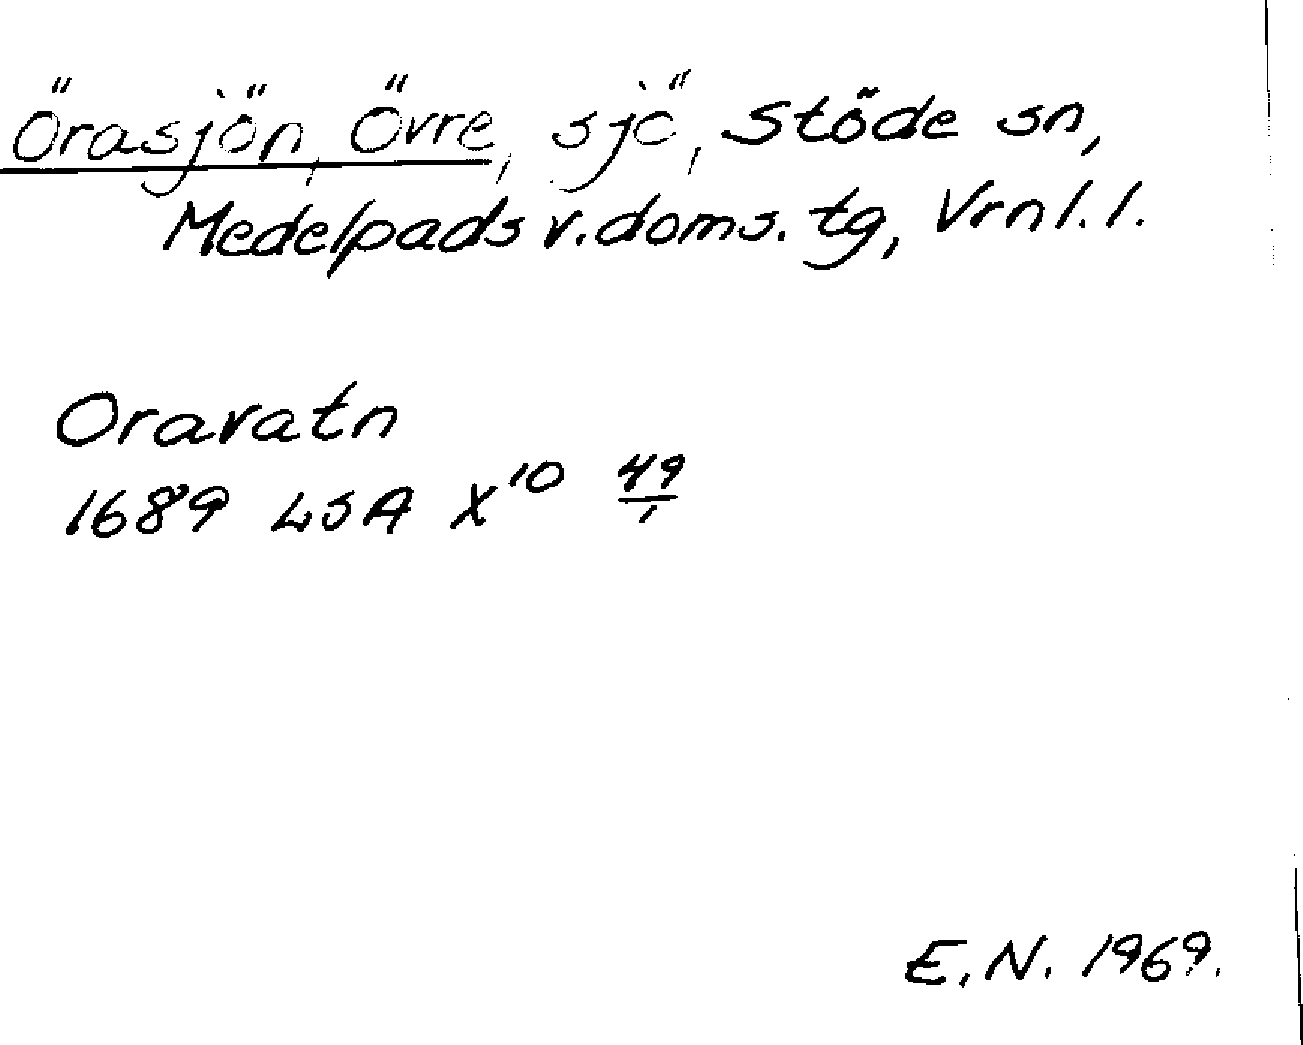 Örasjön, Övre, sjö, Stöde sn,
Medelpads v.doms. tg, Vrnl. l.
Oravatn
1689 LSA X¹⁰ 49/1
E.N. 1969.